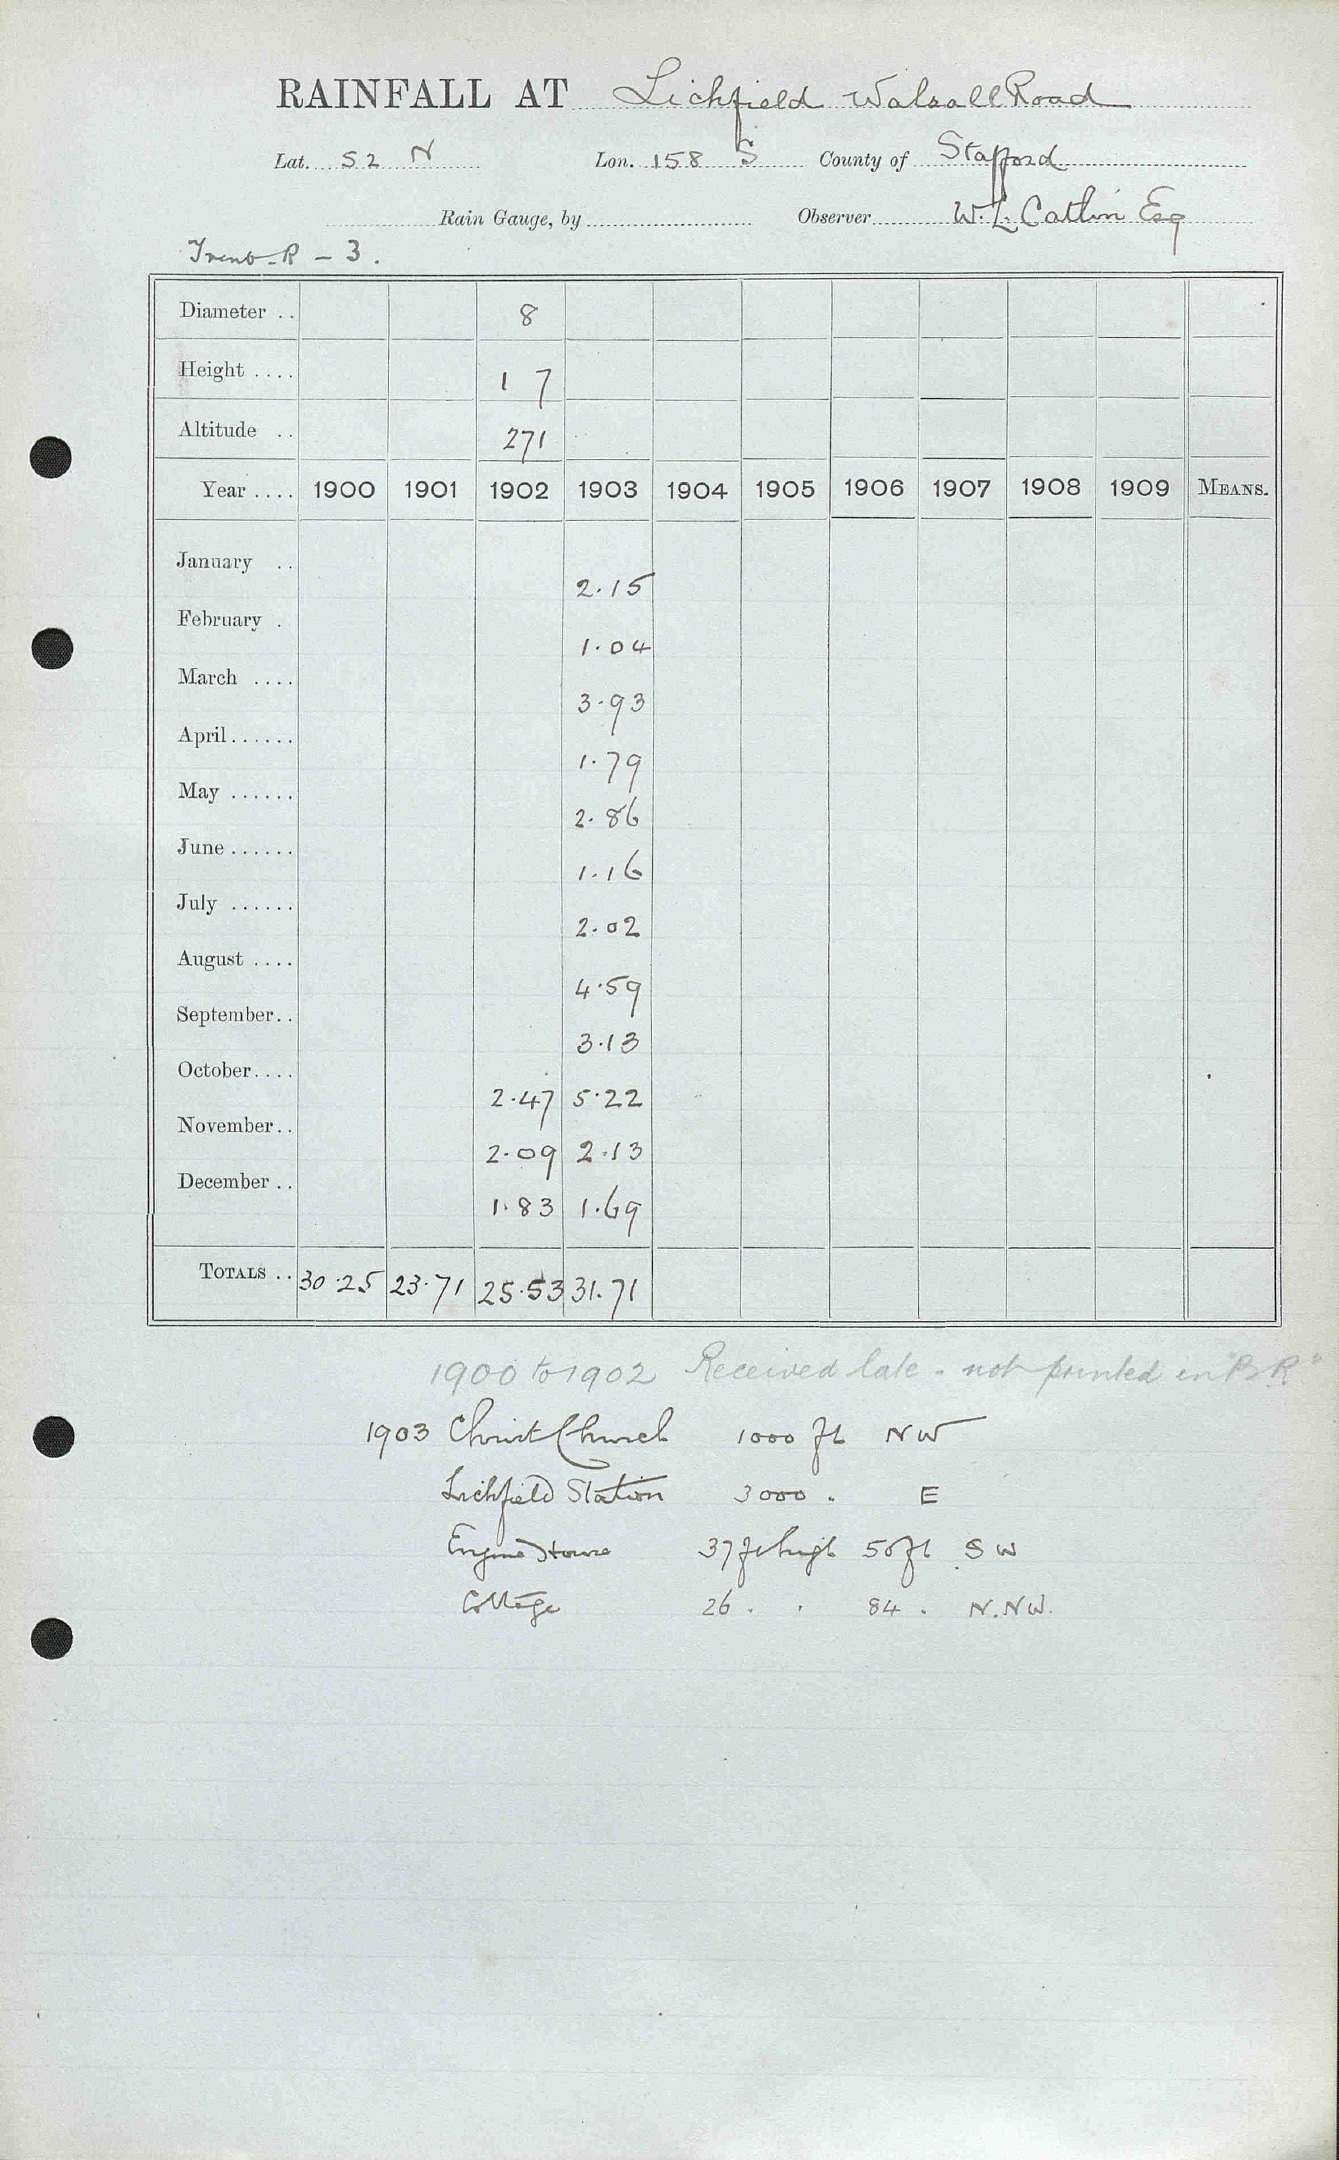 RAINFALL AT Lichfield Walsall Road
Lat. 52 N Lon. 158 S County of Stafford
Rain Gauge, by Observer W. L. Catlin Esq
Trent-R - 3.
Diameter .. 8
Height .... 1 7
Altitude .. 271
Year .... 1900 1901 1902 1903 1904 1905 1906 1907 1908 1909 MEANS.
January .. 2.15
February . 1.04
March .... 3.93
April...... 1.79
May ...... 2.86
June ...... 1.16
July ...... 2.02
August .... 4.59
September.. 3.13
October.... 2.47 5.22
November.. 2.09 2.13
December .. 1.83 1.69
TOTALS .. 30.25 23.71 25.53 31.71
1900 to 1902 Received late - not printed in "B R"
1903 Christ Church 1000 ft NW
Lichfield Station 3000 . E
Engine House 37 ft high 50 ft SW
Cottage 26 . . 84 . N.NW.